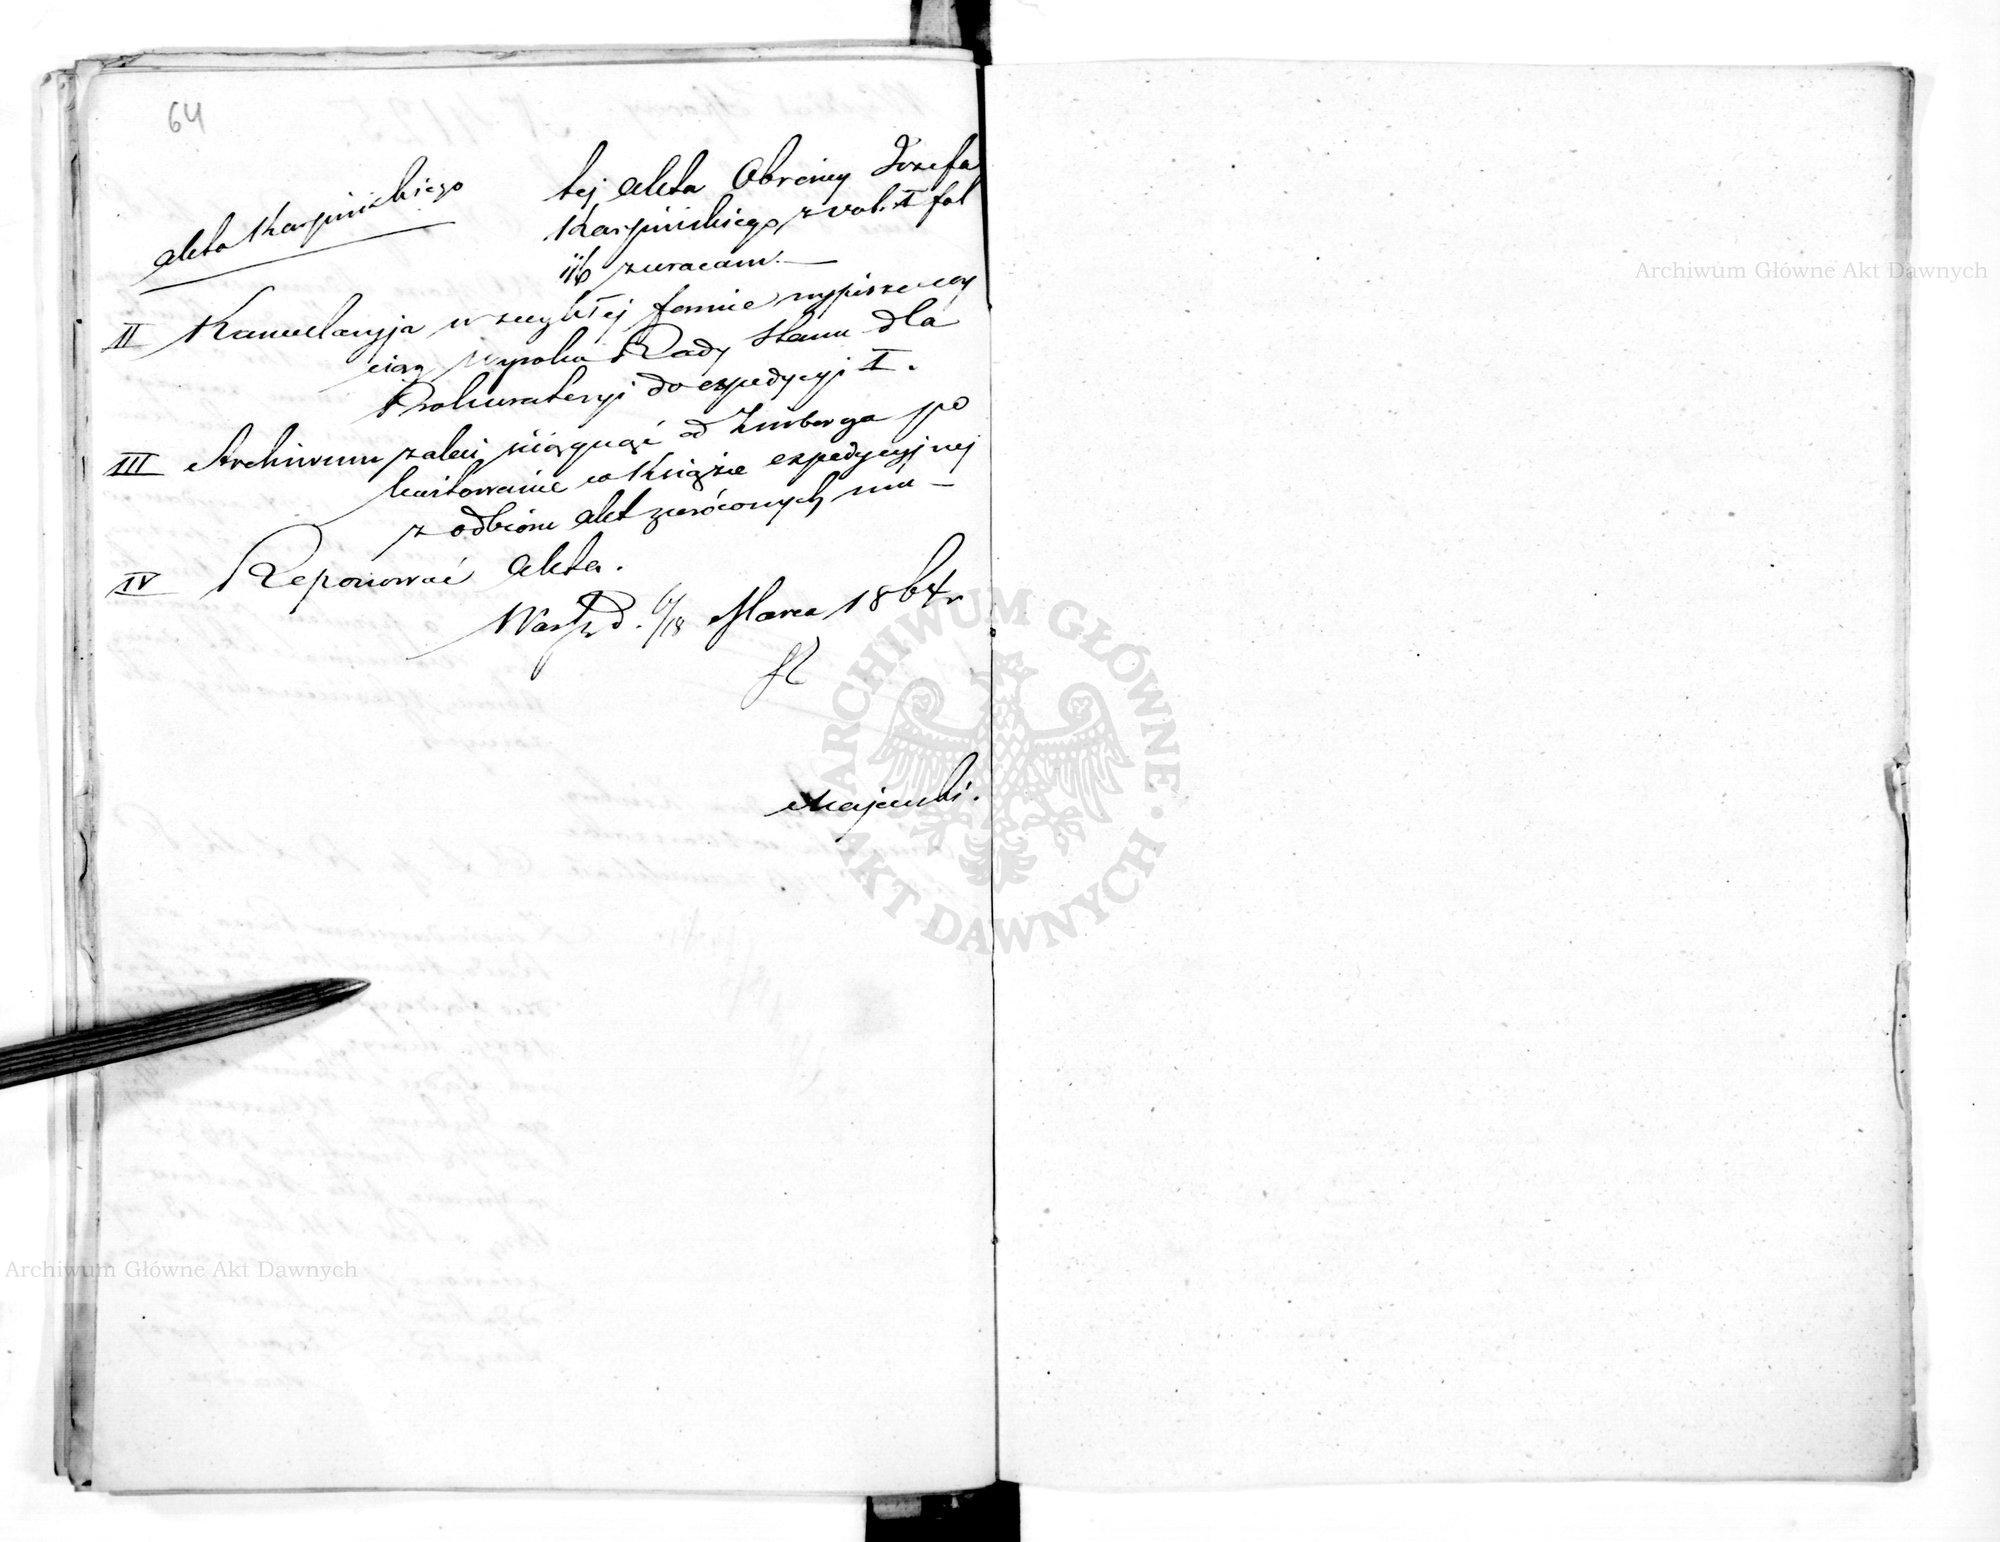 64
Akta Karpińskiego
tej Akta Obrońcy Józefa
Karpińskiego, z vol. I fol
zwracam. —
II Kancellaryja w zwykłej formie wypisze wy
ciąg wyroku Rady Stanu dla
Prokuratoryi do expedycyi I.
III Archiwum zaleci ściągnąć od Zimberga po
kwitowanie w książce expedycyjnej
z odbioru Akt zwróconych mu —
IV Reponować Akta.
Warsz. d. 6/18 Marca 1864 r
Majewski.
Archiwum Główne Akt Dawnych
ARCHIWUM GŁÓWNE AKT DAWNYCH
Archiwum Główne Akt Dawnych